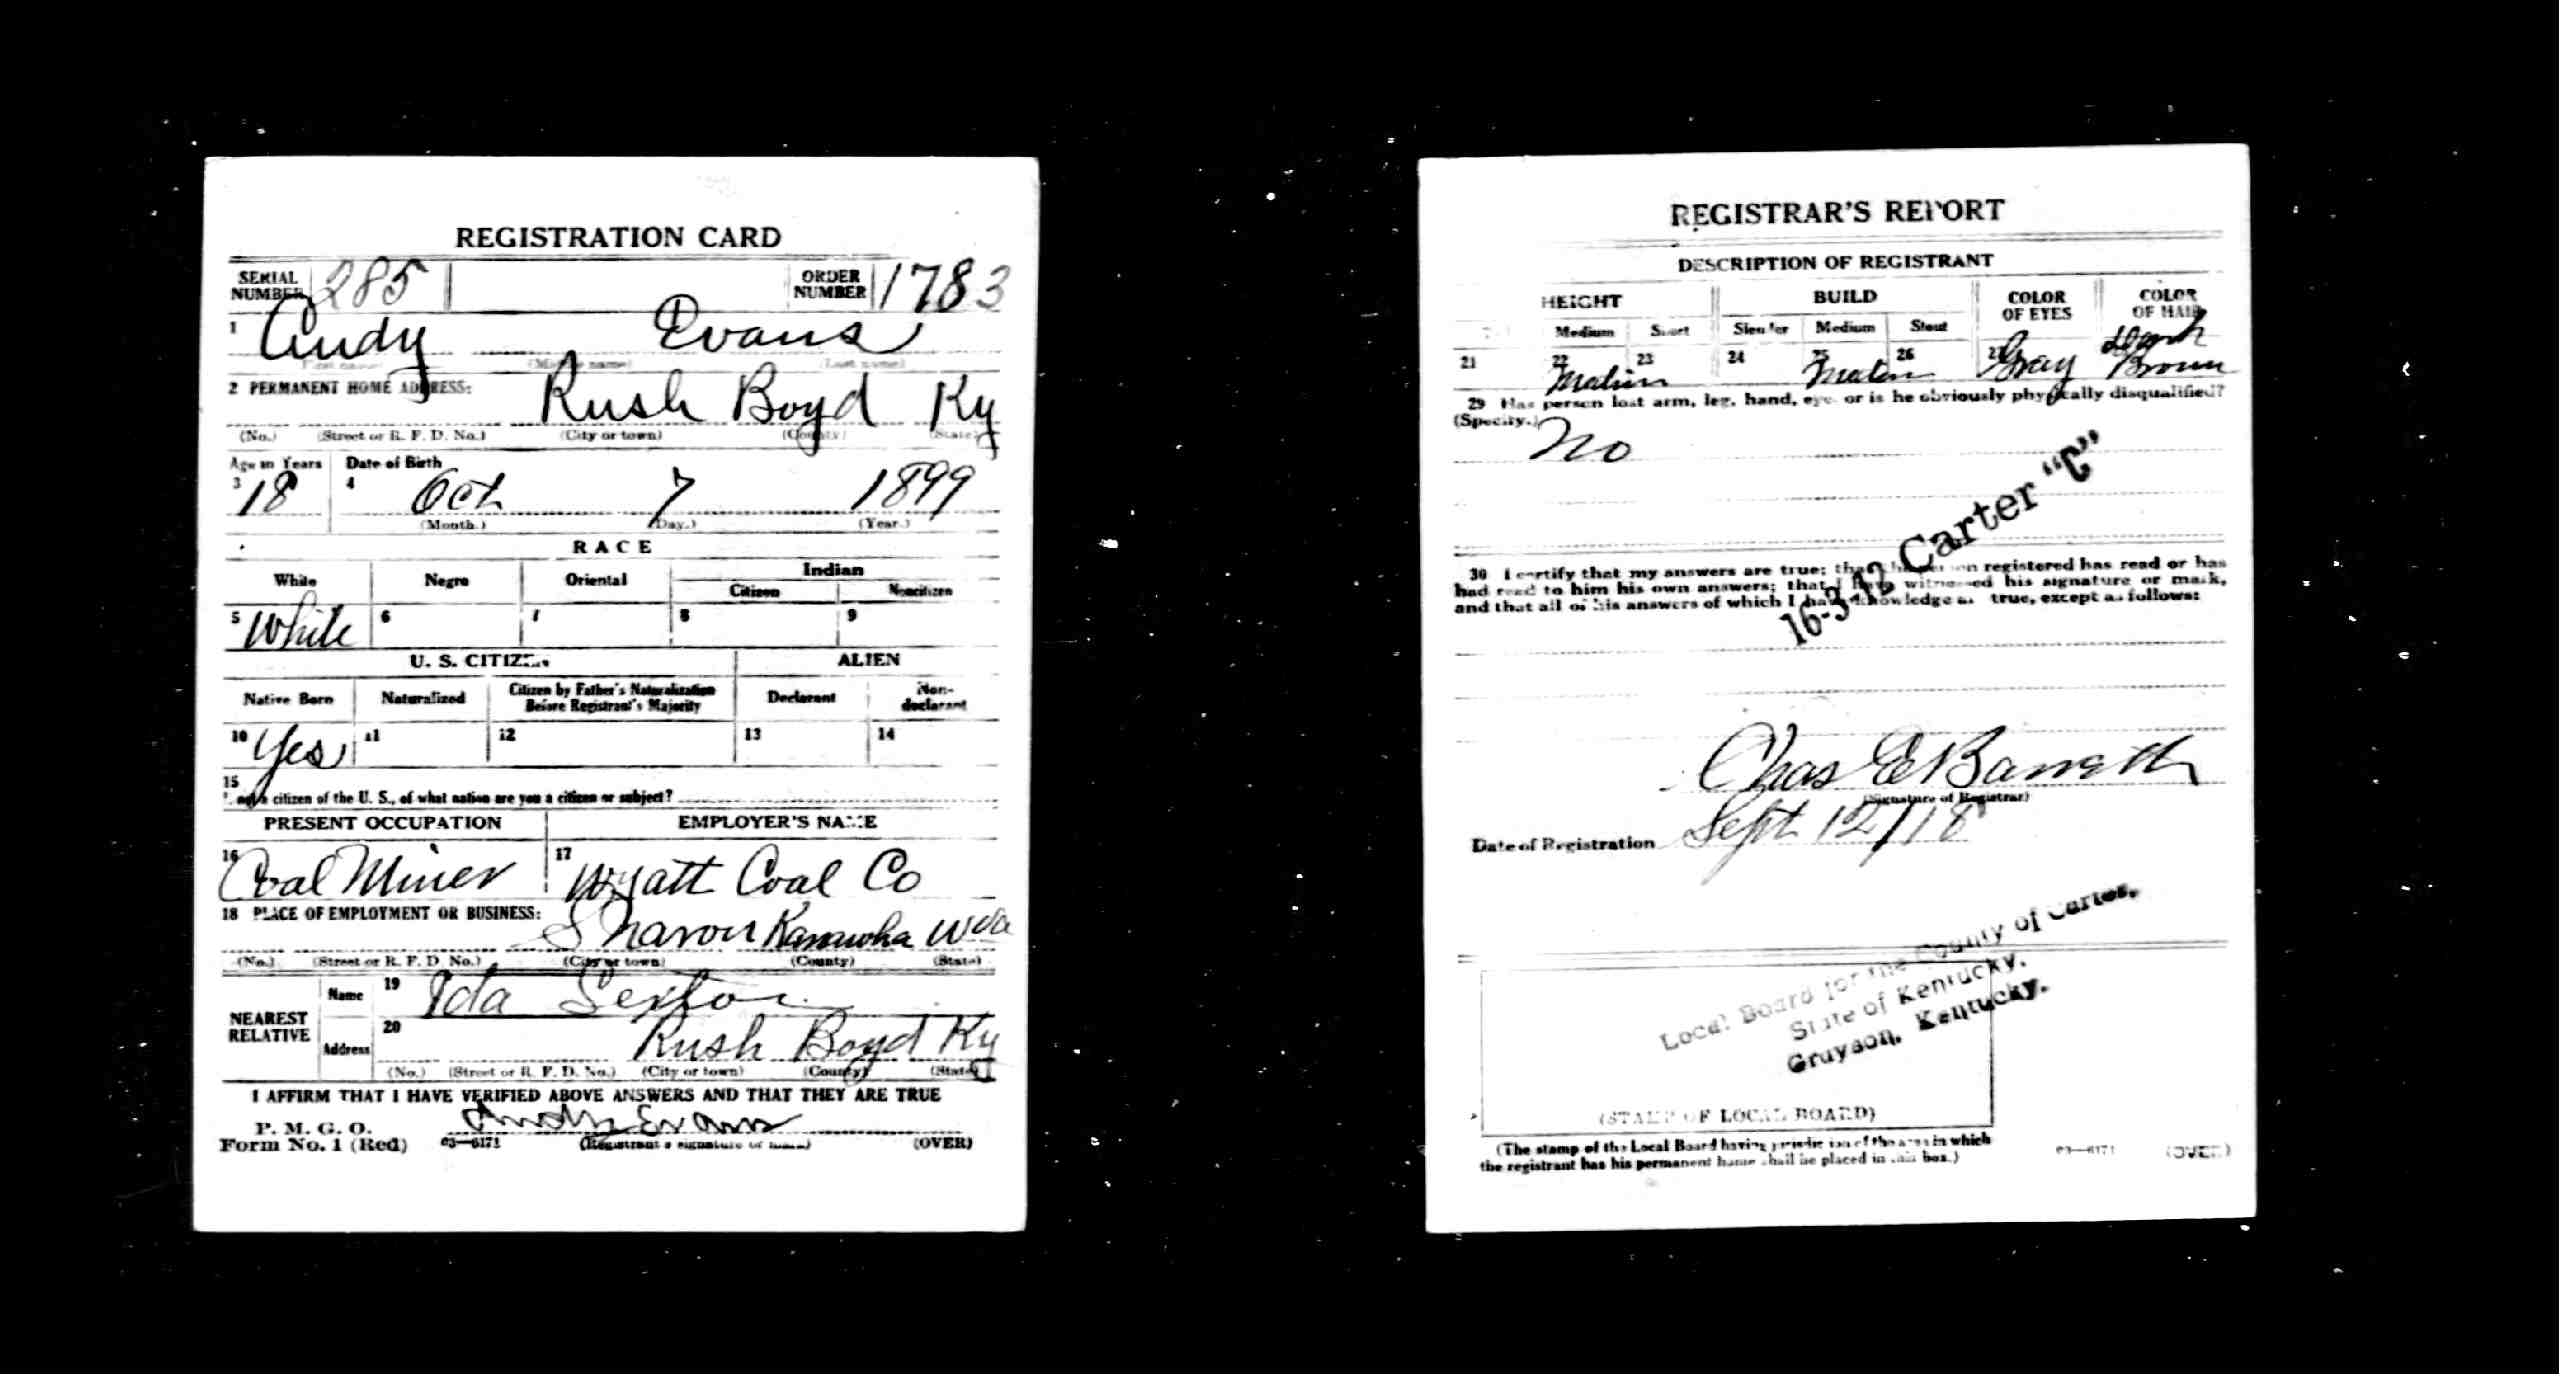 REGISTRATION CARD
SERIAL NUMBER 285 ORDER NUMBER 1783
1 Andy Evans
(First name) (Middle name) (Last name)
2 PERMANENT HOME ADDRESS: Rush Boyd Ky
(No.) (Street or R. F. D. No.) (City or town) (County) (State)
Age in Years Date of Birth
3 18 4 Oct 7 1899
(Month.) (Day.) (Year.)
RACE
White Negro Oriental Indian
Citizen Noncitizen
5 White 6 7 8 9
U. S. CITIZEN ALIEN
Native Born Naturalized Citizen by Father's Naturalization Before Registrant's Majority Declarant Non-declarant
10 Yes 11 12 13 14
15
If not a citizen of the U. S., of what nation are you a citizen or subject?
PRESENT OCCUPATION EMPLOYER'S NAME
16 Coal Miner 17 Wyatt Coal Co
18 PLACE OF EMPLOYMENT OR BUSINESS:
Sharon Kanawha WVa
(No.) (Street or R. F. D. No.) (City or town) (County) (State)
NEAREST RELATIVE
Name 19 Ida Sexton
Address 20 Rush Boyd Ky
(No.) (Street or R. F. D. No.) (City or town) (County) (State)
I AFFIRM THAT I HAVE VERIFIED ABOVE ANSWERS AND THAT THEY ARE TRUE
P. M. G. O.
Form No. 1 (Red) 03—6171 Andy Evans
(Registrant's signature or mark) (OVER)
REGISTRAR'S REPORT
DESCRIPTION OF REGISTRANT
HEIGHT BUILD COLOR OF EYES COLOR OF HAIR
Medium Short Slender Medium Stout
21 22 Medium 23 24 25 Medium 26 27 Gray Dark Brown
29 Has person lost arm, leg, hand, eye, or is he obviously physically disqualified?
(Specify.) No
16-3-12 Carter "C"
30 I certify that my answers are true; that the person registered has read or has
had read to him his own answers; that I have witnessed his signature or mark,
and that all of his answers of which I have knowledge are true, except as follows:
Chas E Barrett
(Signature of Registrar)
Date of Registration Sept 12/18
Local Board for the County of Carter,
State of Kentucky,
Grayson, Kentucky.
(STAMP OF LOCAL BOARD)
(The stamp of the Local Board having jurisdiction of the area in which
the registrant has his permanent home shall be placed in this box.)
03—6171 (OVER)